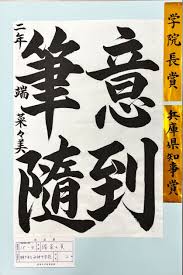 学院長賞
兵庫県知事賞
意到
筆随
二年 端 菜々美